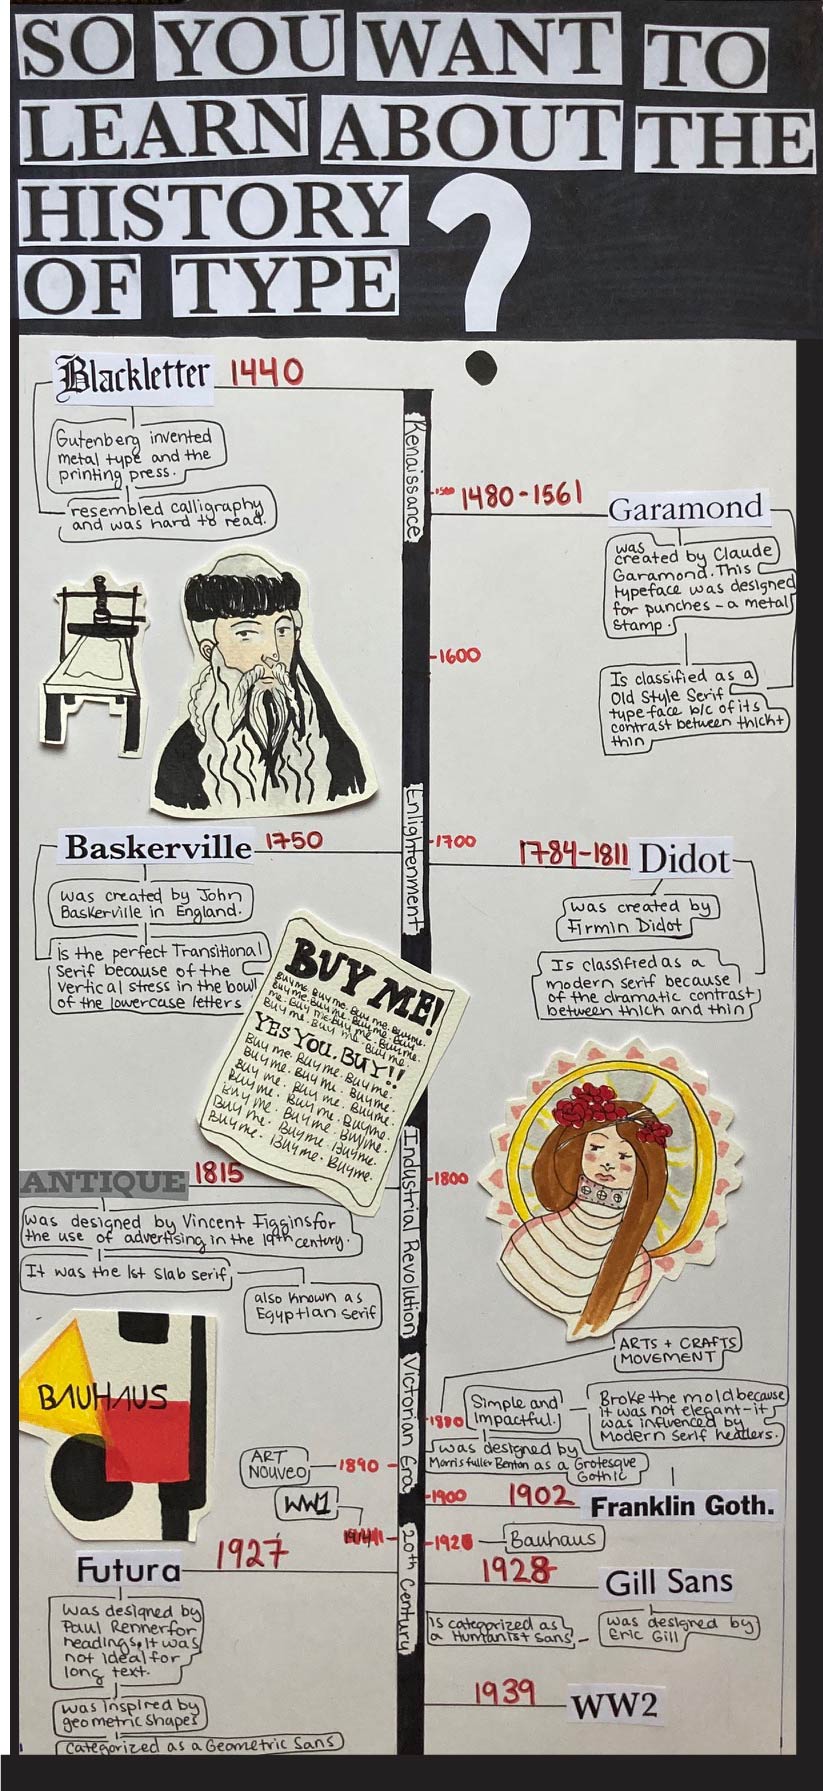 SO YOU WANT TO
LEARN ABOUT THE
HISTORY
OF TYPE
?
Blackletter 1440
Gutenberg invented
metal type and the
printing press.
resembled calligraphy
and was hard to read.
Renaissance
1500
1480-1561
Garamond
was
created by Claude
Garamond. This
typeface was designed
for punches - a metal
stamp.
Is classified as a
Old Style Serif
typeface b/c of its
contrast between thick+
thin
1600
Enlightenment
1700
Baskerville 1750
was created by John
Baskerville in England.
is the perfect Transitional
Serif because of the
vertical stress in the bowl
of the lowercase letters
1784-1811 Didot
was created by
Firmin Didot
Is classified as a
modern serif because
of the dramatic contrast
between thick and thin
BUY ME!
Buy me. Buy me. Buy me. Buy me.
Buy me. Buy me. Buy me. Buy
me. Buy me. Buy me. Buy me.
Buy me. Buy me. Buy me.
YES YOU. BUY!!
Buy me. Buy me. Buy me.
Buy me. Buy me. Buy me.
Buy me. Buy me. Buy me.
Buy me. Buy me. Buy me.
Buy me. Buy me. Buy me.
Buy me. Buy me. Buy me.
Buy me. Buy me. Buy me.
Industrial Revolution
1800
ANTIQUE 1815
was designed by Vincent Figgins for
the use of advertising in the 19th century.
It was the 1st Slab serif
also known as
Egyptian serif
BAUHAUS
ARTS + CRAFTS
MOVEMENT
Victorian Era
1880
Simple and
Impactful.
Broke the mold because
it was not elegant - it
was influenced by
Modern Serif headers.
was designed by
Morris Fuller Benton as a Grotesque
Gothic
ART
NOUVEO
1890
1900
1902 Franklin Goth.
WW1
20th Century
1920
Bauhaus
Futura 1927
was designed by
Paul Renner for
headings. It was
not ideal for
long text.
was inspired by
geometric shapes
Categorized as a Geometric Sans
1928
Gill Sans
is categorized as
a Humanist Sans
was designed by
Eric Gill
1939 WW2